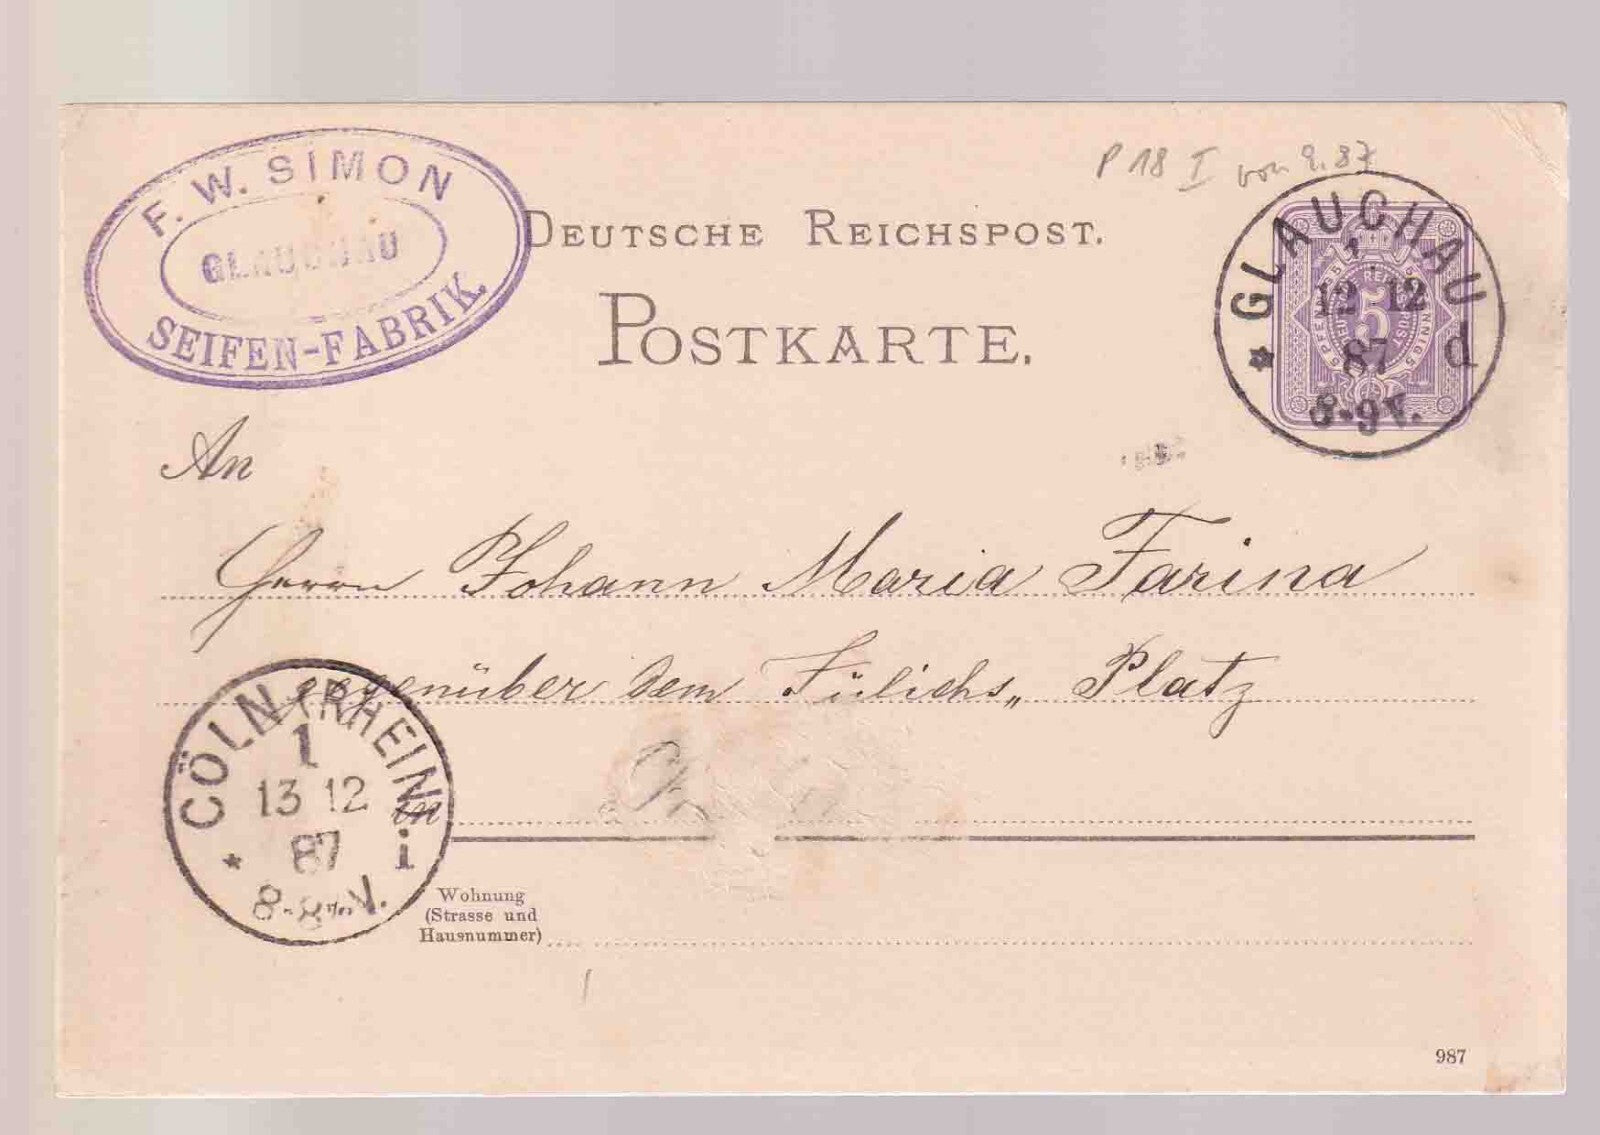 F. W. SIMON
GLAUCHAU
SEIFEN-FABRIK.
P 18 I von 9.87
DEUTSCHE REICHSPOST.
POSTKARTE.
GLAUCHAU
1
12 12
87
d
8-9V.
5
An
Herrn Johann Maria Farina
gegenüber dem Jülichs„ Platz
CÖLN (RHEIN)
1
13 12
87
i
8-8½V.
in
Wohnung
(Strasse und
Hausnummer)
987